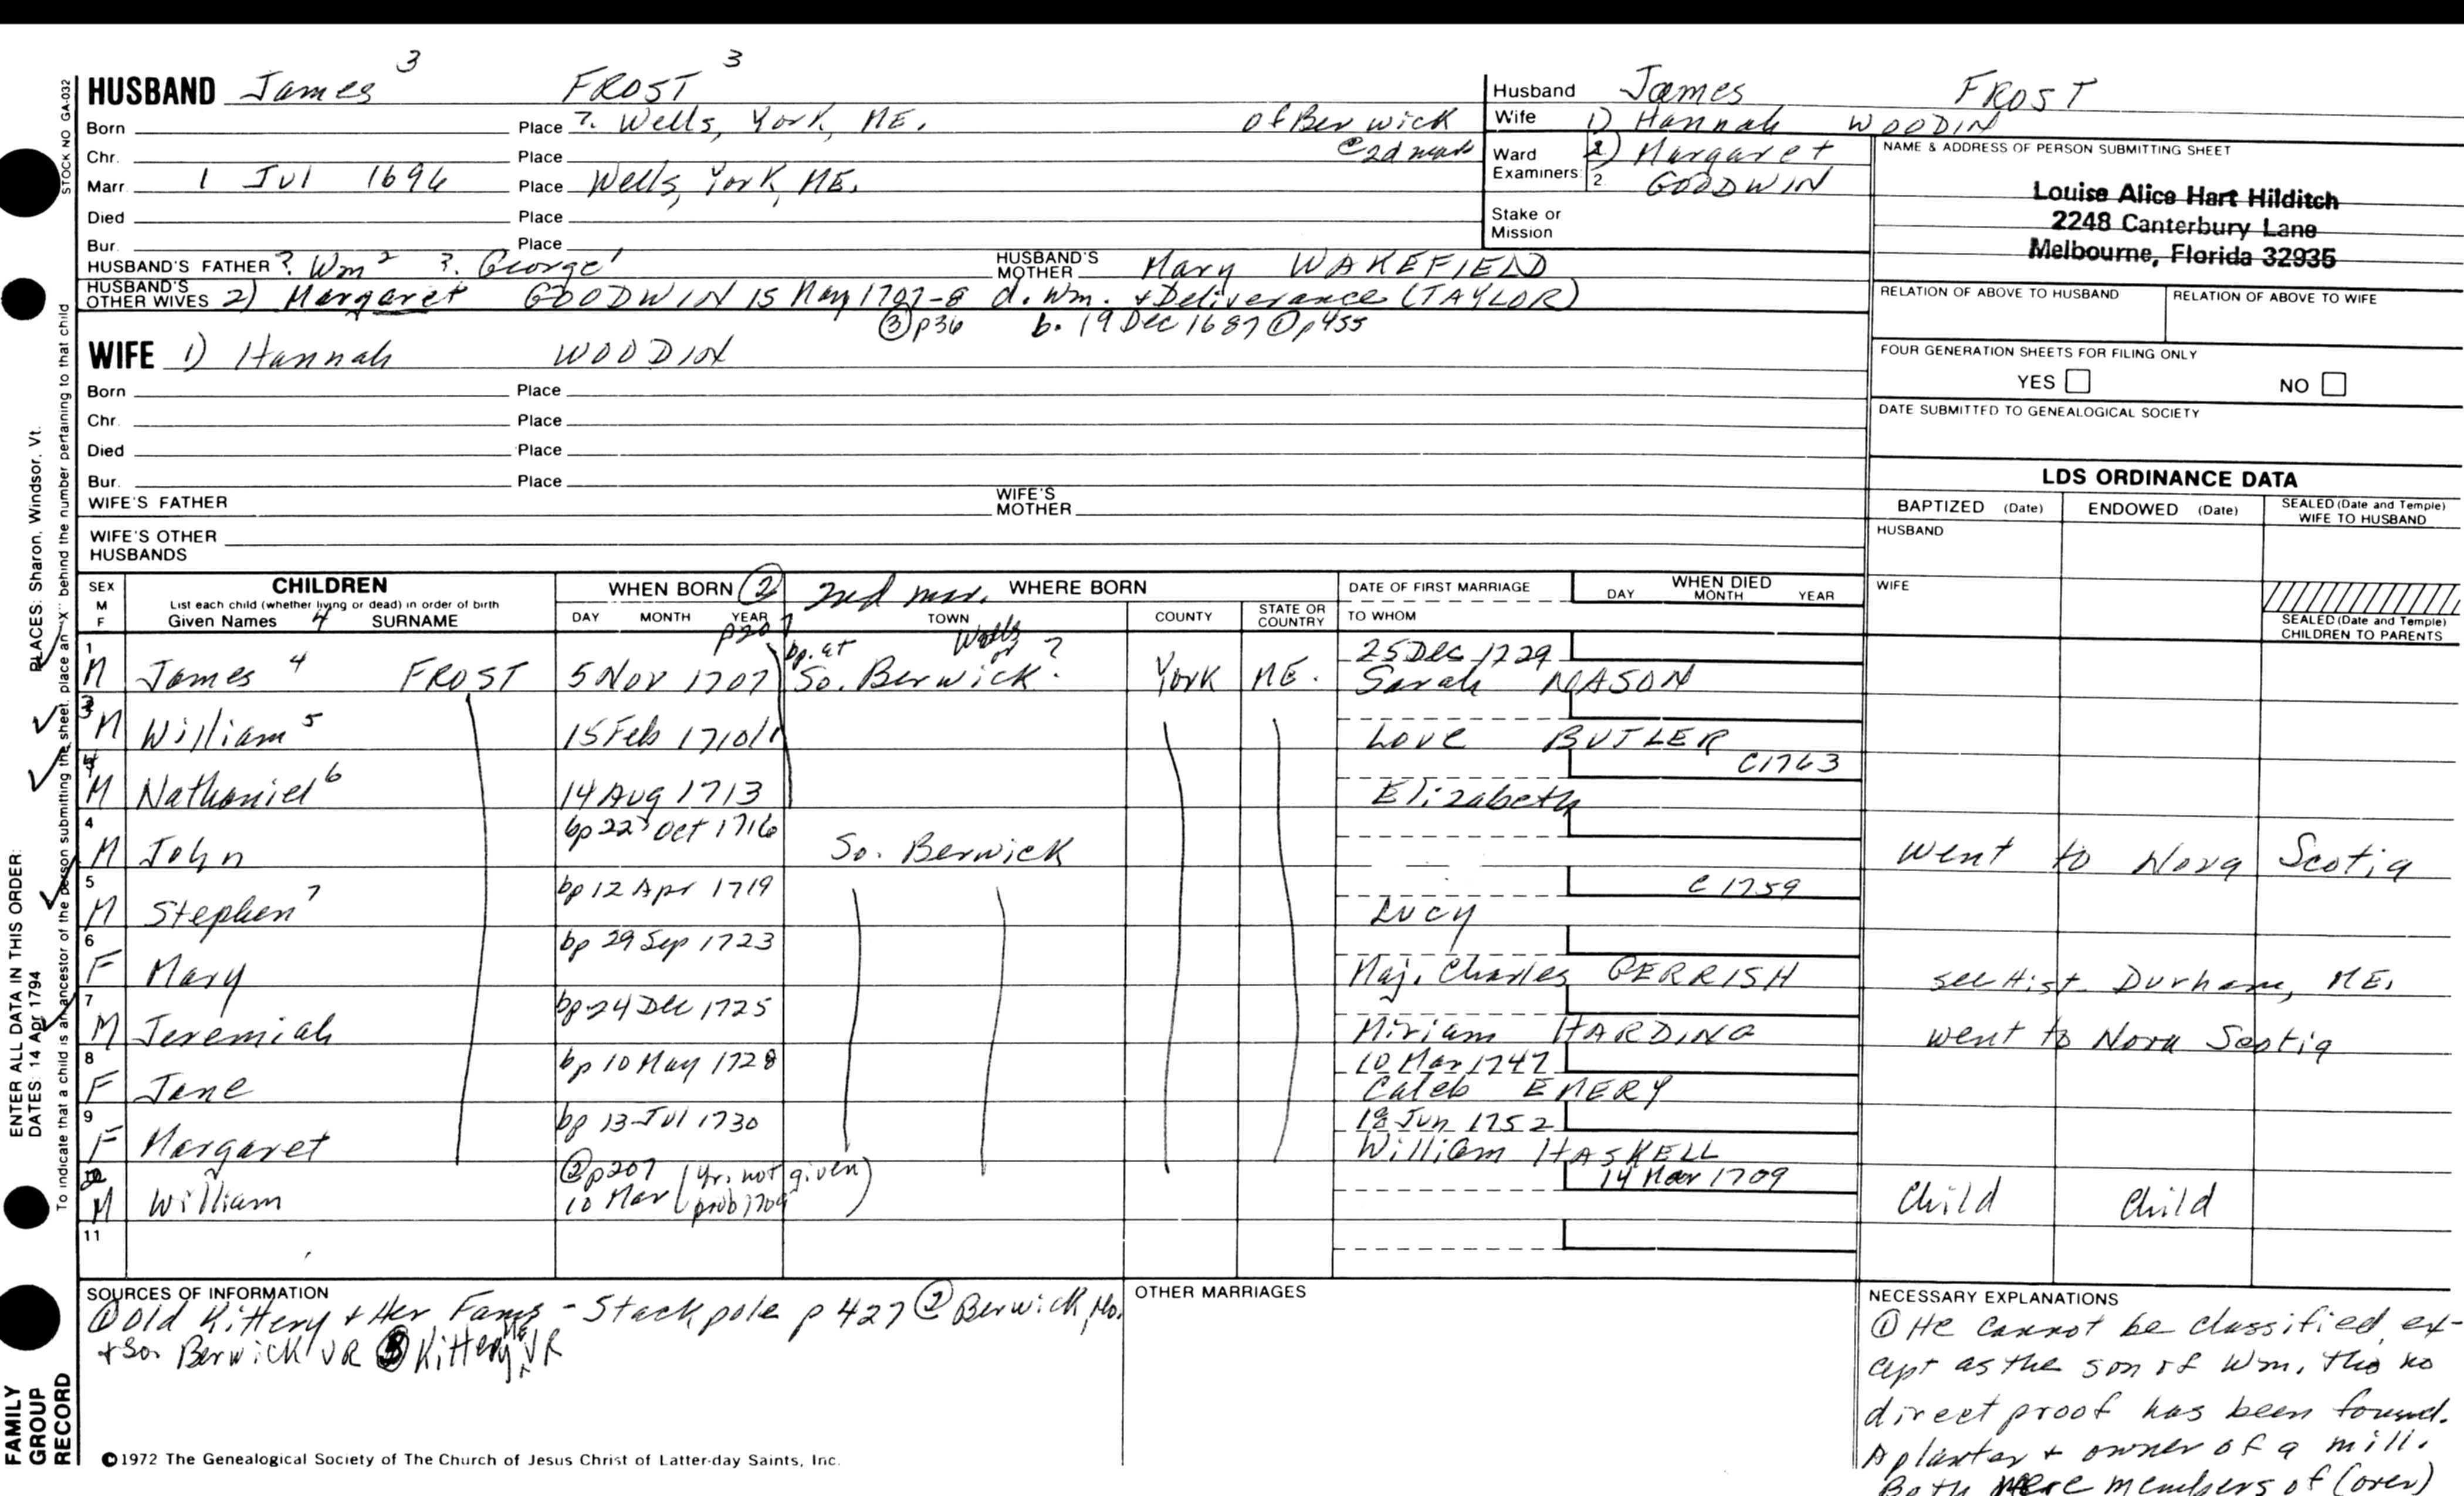 HUSBAND James 3 FROST 3
Born Place ?. Wells, York, ME. of Berwick
Chr. Place @ 2d mar
Marr. 1 Jul 1696 Place Wells, York, ME.
Died Place
Bur. Place
HUSBAND'S FATHER ?. Wm 2 ?. George 1 HUSBAND'S MOTHER Mary WAKEFIELD
HUSBAND'S OTHER WIVES 2) Margaret GOODWIN 15 May 1707-8 d. Wm. + Deliverance (TAYLOR)
③ p36 b. 19 Dec 1687 ① p455
WIFE 1) Hannah WOODIN
Born Place
Chr. Place
Died Place
Bur. Place
WIFE'S FATHER WIFE'S MOTHER
WIFE'S OTHER HUSBANDS
Husband James FROST
Wife 1) Hannah WOODIN
Ward 2) Margaret
Examiners: 2. GOODWIN
Stake or Mission
NAME & ADDRESS OF PERSON SUBMITTING SHEET
Louise Alice Hart Hilditch
2248 Canterbury Lane
Melbourne, Florida 32935
RELATION OF ABOVE TO HUSBAND RELATION OF ABOVE TO WIFE
FOUR GENERATION SHEETS FOR FILING ONLY
YES NO
DATE SUBMITTED TO GENEALOGICAL SOCIETY
LDS ORDINANCE DATA
BAPTIZED (Date) ENDOWED (Date) SEALED (Date and Temple) WIFE TO HUSBAND
HUSBAND
WIFE
SEALED (Date and Temple) CHILDREN TO PARENTS
SEX M F CHILDREN WHEN BORN ② 2nd mar. WHERE BORN DATE OF FIRST MARRIAGE WHEN DIED
List each child (whether living or dead) in order of birth DAY MONTH YEAR
Given Names 4 SURNAME DAY MONTH YEAR TOWN COUNTY STATE OR COUNTRY TO WHOM
p207 bp. at Wells or ? 25 Dec 1729
1 M James 4 FROST 5 Nov 1707 So. Berwick. York ME. Sarah NASON
3 M William 5 15 Feb 1710/1 Love BUTLER
C1763
M Nathaniel 6 14 Aug 1713 Elizabeth
4 M John bp 22 Oct 1716 So. Berwick went to Nova Scotia
5 M Stephen 7 bp 12 Apr 1719 Lucy C 1759
6 F Mary bp 29 Sep 1723 Maj. Charles GERRISH see Hist. Durham, ME.
7 M Jeremiah bp 24 Dec 1725 Miriam HARDING went to Nova Scotia
8 F Jane bp 10 May 1728 10 Mar 1747 Caleb EMERY
9 F Margaret bp 13 Jul 1730 18 Jun 1752 William HASKELL
2 M William ② p207 10 Mar (yr. not given) prob 1709 14 Mar 1709 Child Child
11
SOURCES OF INFORMATION
① Old Kittery + Her Fams - Stackpole p 427 ② Berwick, No.
+ So. Berwick VR ③ Kittery, ME VR
OTHER MARRIAGES
NECESSARY EXPLANATIONS
① He cannot be classified ex-
cept as the son of Wm, tho no
direct proof has been found.
A planter + owner of a mill.
Both were members of (over)
©1972 The Genealogical Society of The Church of Jesus Christ of Latter-day Saints, Inc.
STOCK NO GA-032
To indicate that a child is an ancestor of the person submitting the sheet, place an "X" behind the number pertaining to that child
ENTER ALL DATA IN THIS ORDER:
PLACES: Sharon, Windsor, Vt.
DATES: 14 Apr 1794
FAMILY GROUP RECORD